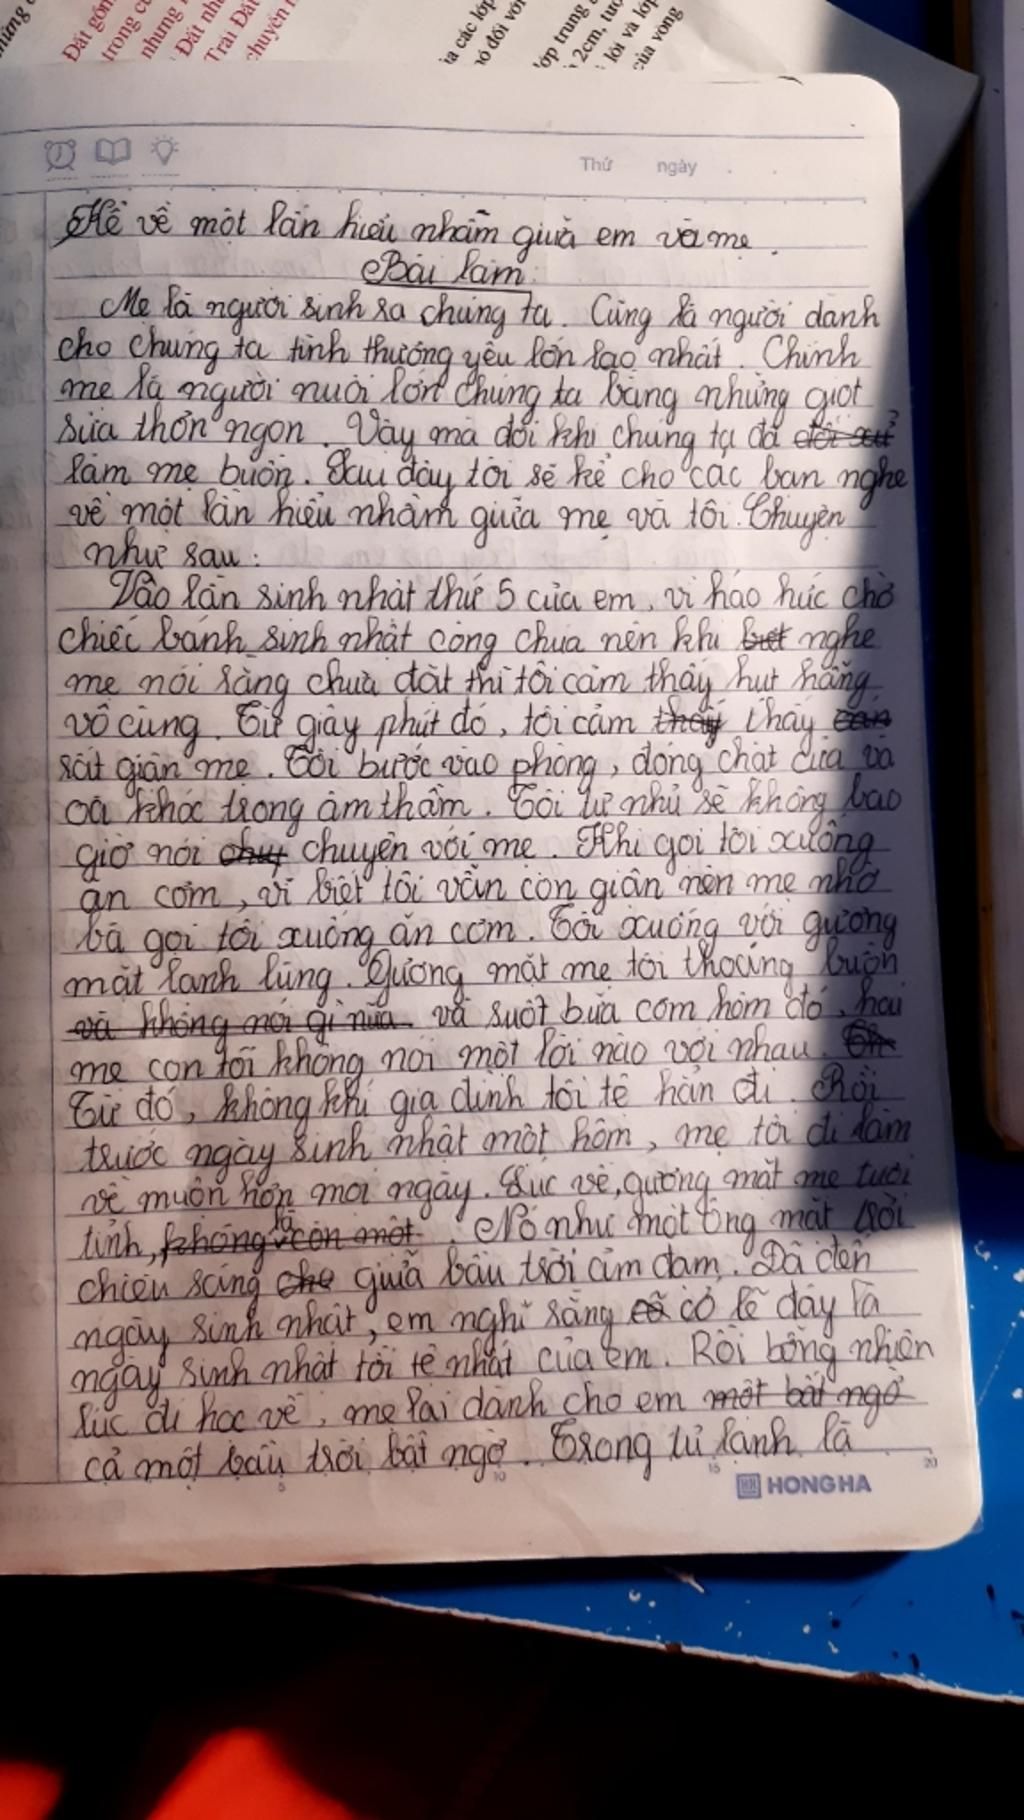 Đất gồm
trong cá
nhưng
Đất nhu
Trái Đất
chuyển
ủa các lớp
nó đối với
lớp trung
2cm, tươ
lõi và lớp
của vòng
Thứ ngày
Kể về một lần hiểu nhầm giữa em và mẹ.
Bài làm:
Mẹ là người sinh ra chúng ta. Cũng là người dành
cho chúng ta tình thương yêu lớn lao nhất. Chính
mẹ là người nuôi lớn chúng ta bằng những giọt
sữa thơn ngon. Vậy mà đôi khi chúng ta đã đối xử
làm mẹ buồn. Sau đây tôi sẽ kể cho các bạn nghe
về một lần hiểu nhầm giữa mẹ và tôi. Chuyện
như sau:
Vào lần sinh nhật thứ 5 của em, vì háo hức chờ
chiếc bánh sinh nhật công chúa nên khi biết nghe
mẹ nói rằng chưa đặt thì tôi cảm thấy hụt hẫng
vô cùng. Từ giây phút đó, tôi cảm thấy thấy căn
rất giận mẹ. Tôi bước vào phòng, đóng chặt cửa và
oà khóc trong âm thầm. Tôi tự nhủ sẽ không bao
giờ nói chuy chuyện với mẹ. Khi gọi tôi xuống
ăn cơm, vì biết tôi vẫn còn giận nên mẹ nhờ
bà gọi tôi xuống ăn cơm. Tôi xuống với gương
mặt lạnh lùng. Gương mặt mẹ tôi thoáng buồn
và không nói gì nữa và suốt bữa cơm hôm đó, hai
mẹ con tôi không nói một lời nào với nhau.
Từ đó, không khí gia đình tôi tệ hẳn đi. Rồi
trước ngày sinh nhật một hôm, mẹ tôi đi làm
về muộn hơn mọi ngày. Lúc về, gương mặt mẹ tươi
tỉnh, không là còn một. Nó như một ông mặt trời
chiếu sáng che giữa bầu trời ảm đạm. Đã đến
ngày sinh nhật, em nghĩ rằng cỗ có lẽ đây là
ngày sinh nhật tồi tệ nhất của em. Rồi bỗng nhiên
lúc đi học về, mẹ lại dành cho em một bất ngờ
cả một bầu trời bất ngờ. Trong tủ lạnh là
5 10 15 20
HONG HA